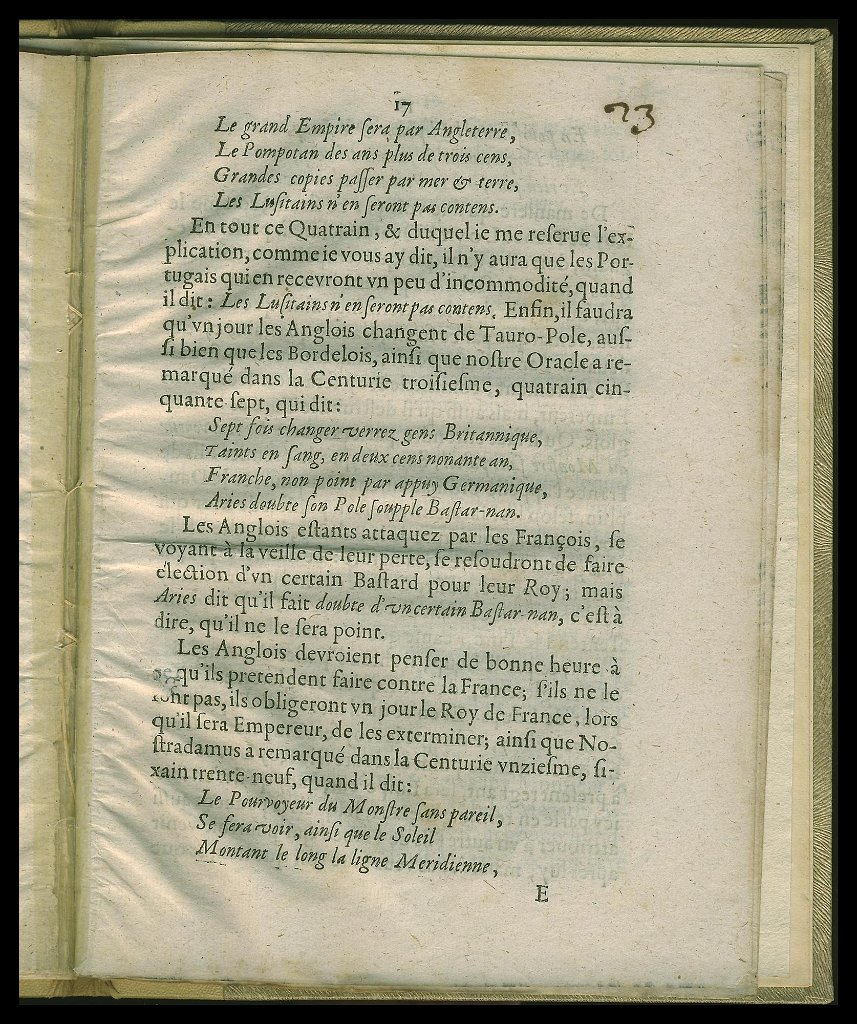 17
23
Le grand Empire ſera par Angleterre,
Le Pompotan des ans plus de trois cens,
Grandes copies paſſer par mer & terre,
Les Luſitains n'en ſeront pas contens.
En tout ce Quatrain, & duquel ie me reſerue l'ex-
plication, comme ie vous ay dit, il n'y aura que les Por-
tugais qui en recevront vn peu d'incommodité, quand
il dit: Les Luſitains n'en ſeront pas contens. Enfin, il faudra
qu'vn jour les Anglois changent de Tauro-Pole, auſ-
ſi bien que les Bordelois, ainſi que noſtre Oracle a re-
marqué dans la Centurie troiſieſme, quatrain cin-
quante ſept, qui dit:
Sept fois changer verrez gens Britannique,
Taints en ſang, en deux cens nonante an,
Franche, non point par appuy Germanique,
Aries doubte ſon Pole ſoupple Baſtar-nan.
Les Anglois eſtants attaquez par les François, ſe
voyant à la veille de leur perte, ſe reſoudront de faire
élection d'vn certain Baſtard pour leur Roy; mais
Aries dit qu'il fait doubte d'vn certain Baſtar-nan, c'eſt à
dire, qu'il ne le ſera point.
Les Anglois devroient penſer de bonne heure à
ce qu'ils pretendent faire contre la France; ſ'ils ne le
font pas, ils obligeront vn jour le Roy de France, lors
qu'il ſera Empereur, de les exterminer; ainſi que No-
ſtradamus a remarqué dans la Centurie vnzieſme, ſi-
xain trente-neuf, quand il dit:
Le Pourvoyeur du Monſtre ſans pareil,
Se fera voir, ainſi que le Soleil
Montant le long la ligne Meridienne,
E